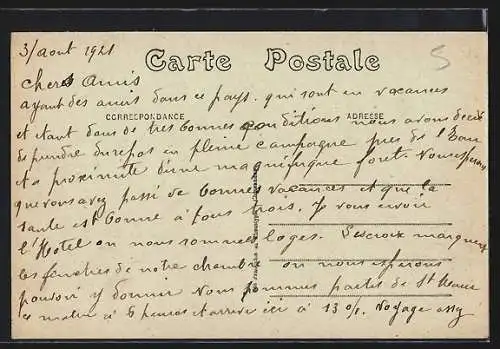 3/aout 1921
Carte Postale
chers amis
ayant des amis dans ce pays. qui sont en vacances
CORRESPONDANCE
ADRESSE
et etant dans de tres bonnes conditions nous avons decidé
de prendre du repos en pleine campagne pres de l'Eau
et a proximite d'une magnifique foret. Nous esperons
que vous avez passé de bonnes vacances et que la
sante est bonne à tous trois. Je vous envoie
l'Hotel ou nous sommes loges. Les croix marquent
les fenetres de notre chambre ou nous esperons
pouvoir y dormir Nous sommes partis de St
ce matin à 6 heures et arrive ici à 13 h. Voyage